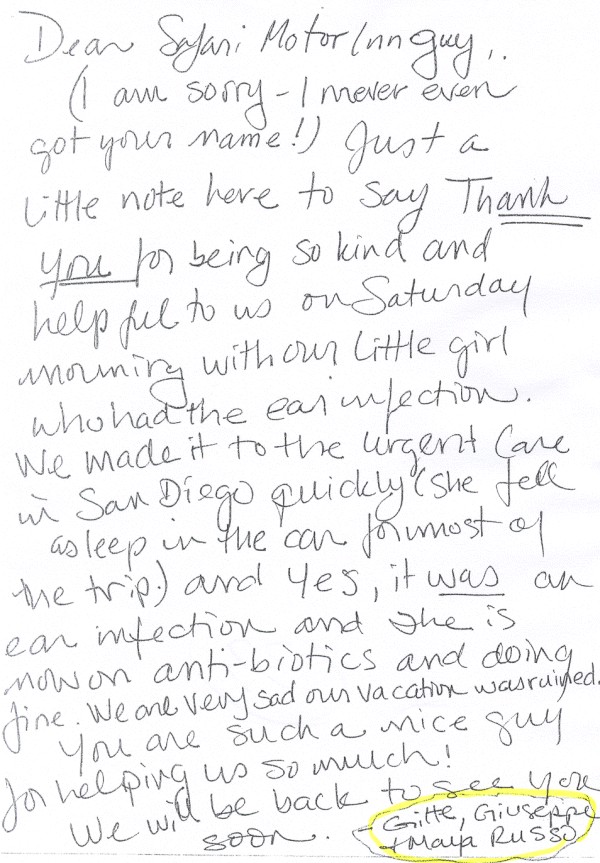 Dear Safari Motor Inn guy,.
(I am sorry - I never even
got your name!) Just a
little note here to say Thank
you for being so kind and
helpful to us on Saturday
morning with our little girl
who had the ear infection.
We made it to the urgent Care
in San Diego quickly (she fell
asleep in the car for most of
the trip.) and yes, it was an
ear infection and she is
now on anti-biotics and doing
fine. We are very sad our vacation was ruined.
You are such a nice guy
for helping us so much!
We will be back to see you
soon. - Gitte, Giuseppe
+ Maya Russo